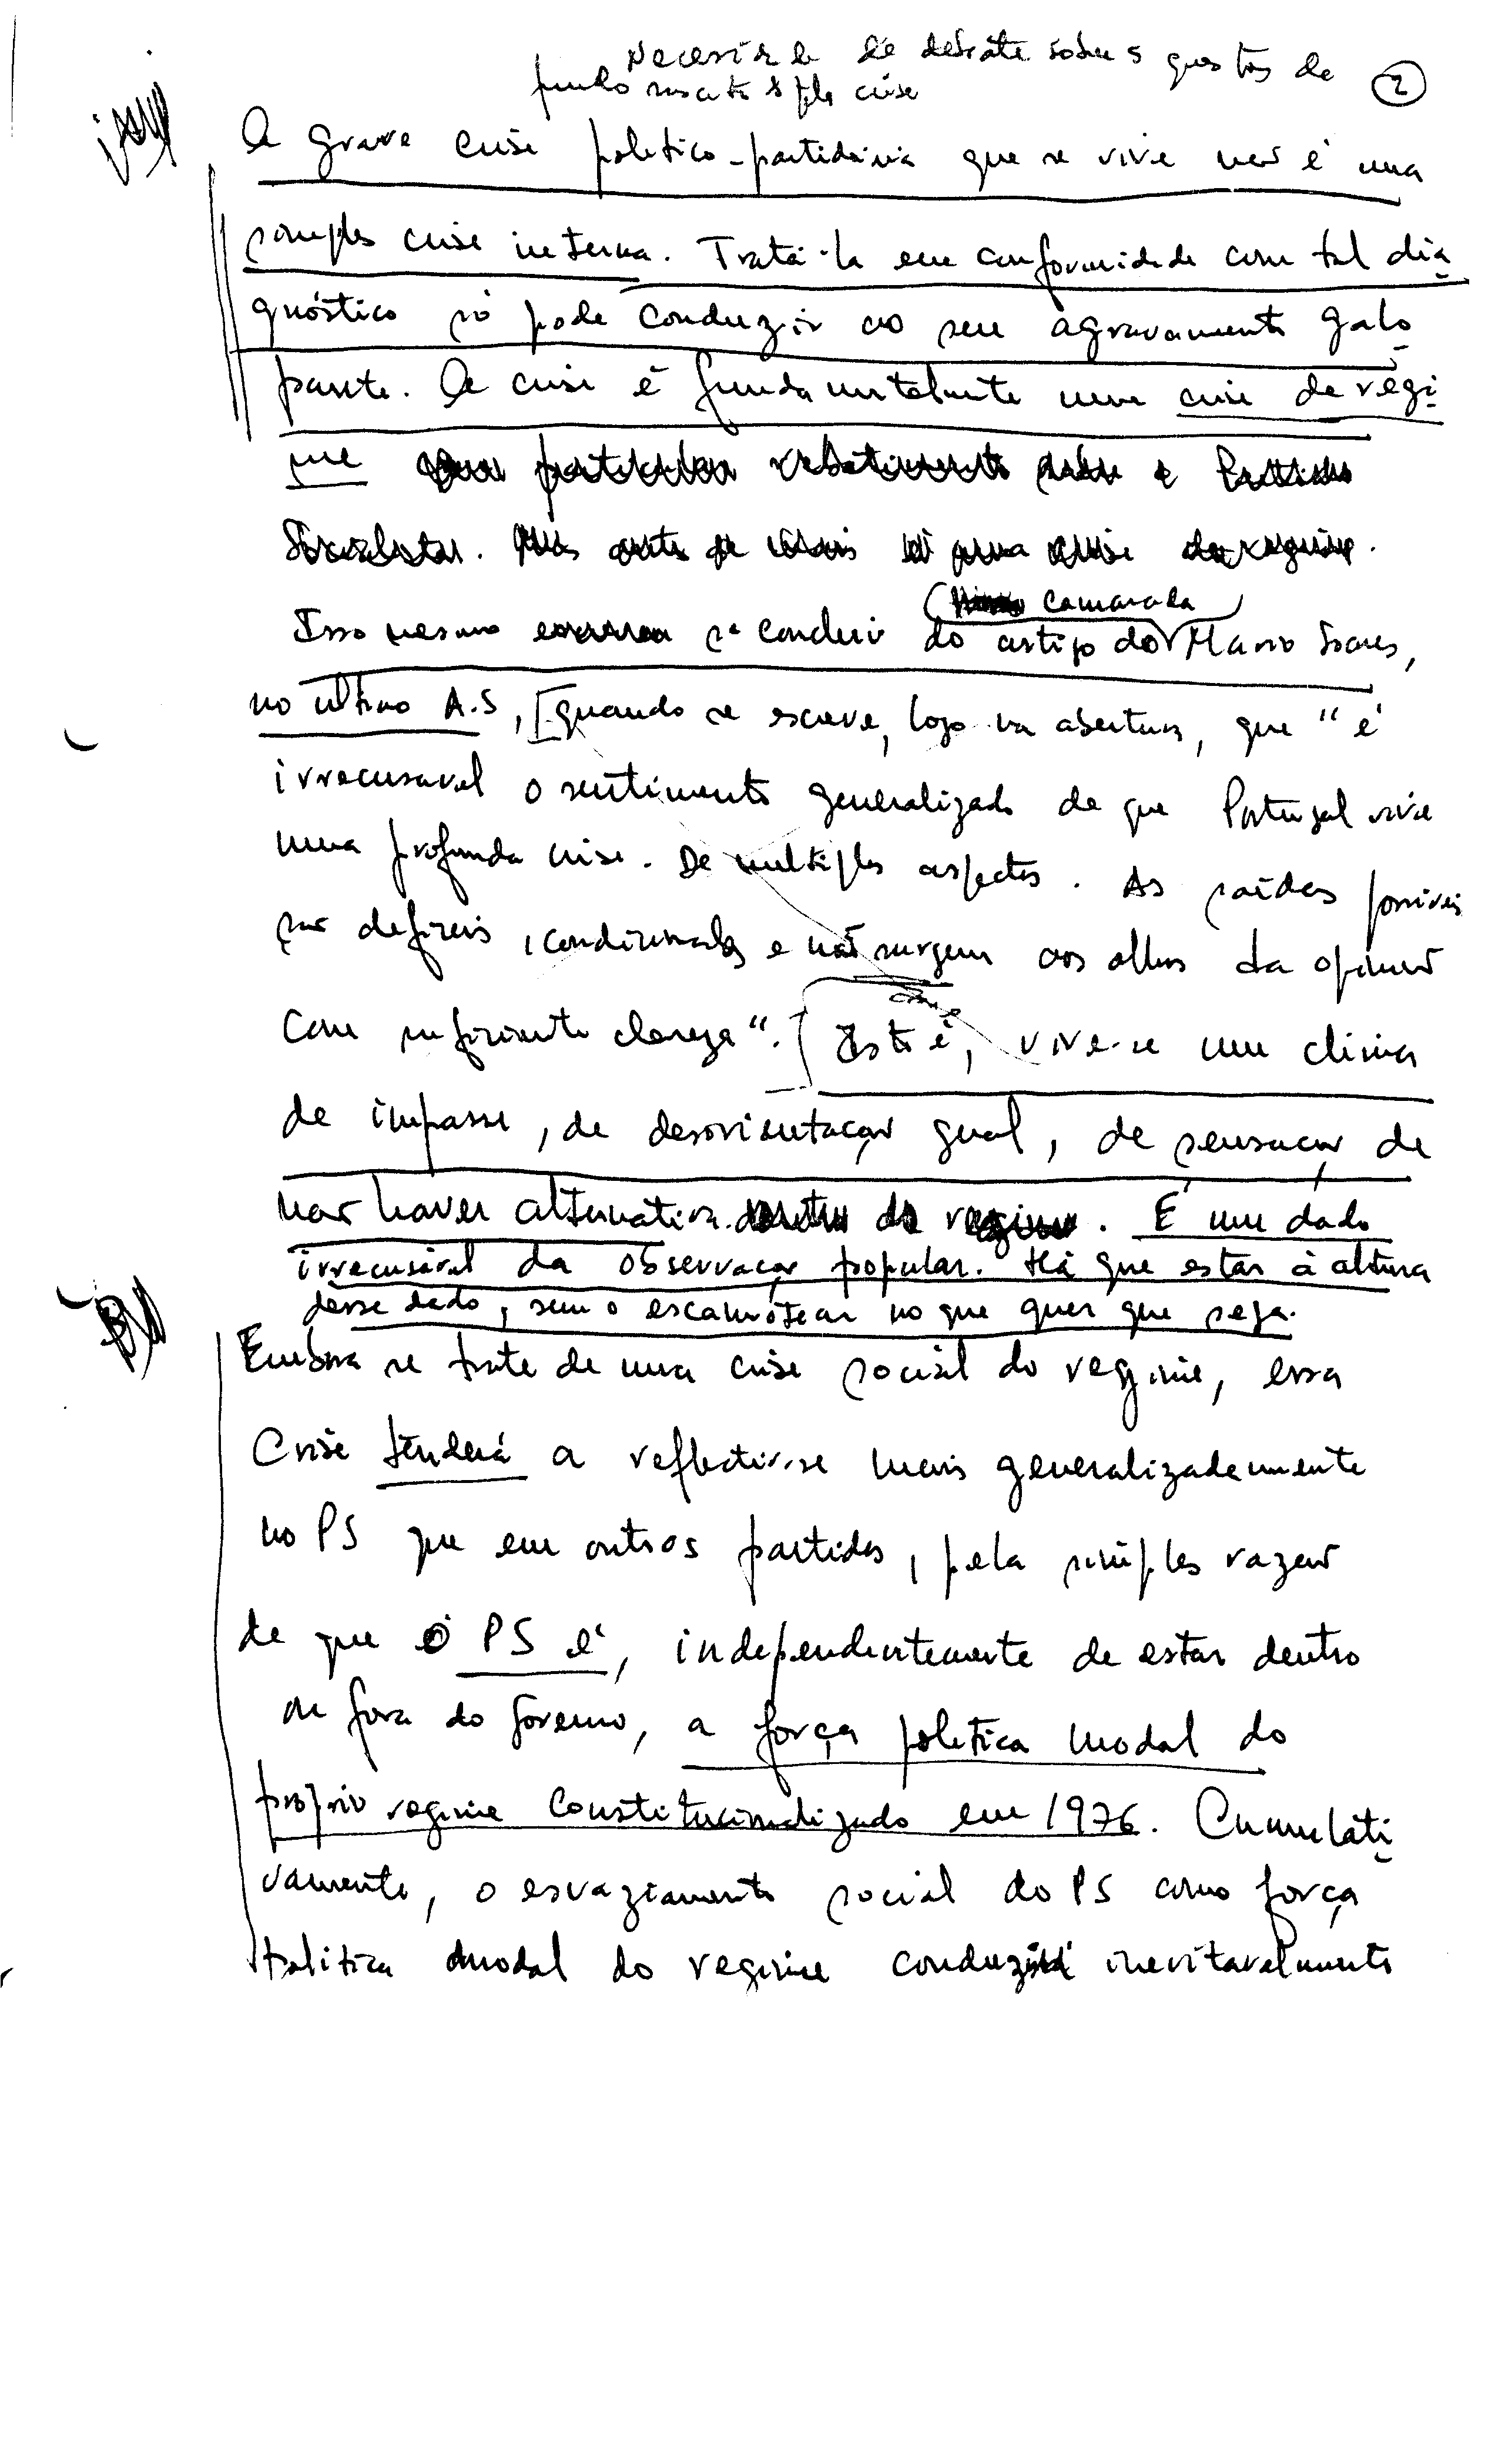 Necessidade de debate sobre questões de
fundo suscitadas pela crise
2
A grave crise politico-partidária que se vive não é uma
simples crise interna. Tratá-la em conformidade com tal dia
gnóstico só pode conduzir ao seu agravamento galo
pante. A crise é fundamentalmente uma crise de regi
me com particular rebatimento sobre o Partido
Socialista. Mas antes de mais é uma crise do regime.
camarada
Isso mesmo se conclui do artigo do Mario Soares,
no ultimo A.S, [quando se escreve, logo na abertura, que "é
irrecusavel o sentimento generalizado de que Portugal vive
uma profunda crise. De multiplos aspectos. As saídas possiveis
são dificeis, condicionadas e não surgem aos olhos da opinião
com suficiente clareza".] Isto é, vive-se um clima
de impasse, de desorientação geral, de sensação de
não haver alternativa dentro do regime. É um dado
irrecusável da observação popular. Há que estar à altura
desse dado, sem o escamotear no que quer que seja.
Embora se trate de uma crise social do regime, essa
Crise tenderá a reflectir-se mais generalizadamente
no PS que em outros partidos, pela simples razão
de que o PS é, independentemente de estar dentro
ou fora do Governo, a força politica modal do
proprio regime Constitucionalizado em 1976. Cumulati
vamente, o esvaziamento social do PS como força
politica modal do regime conduzirá inevitavelmente